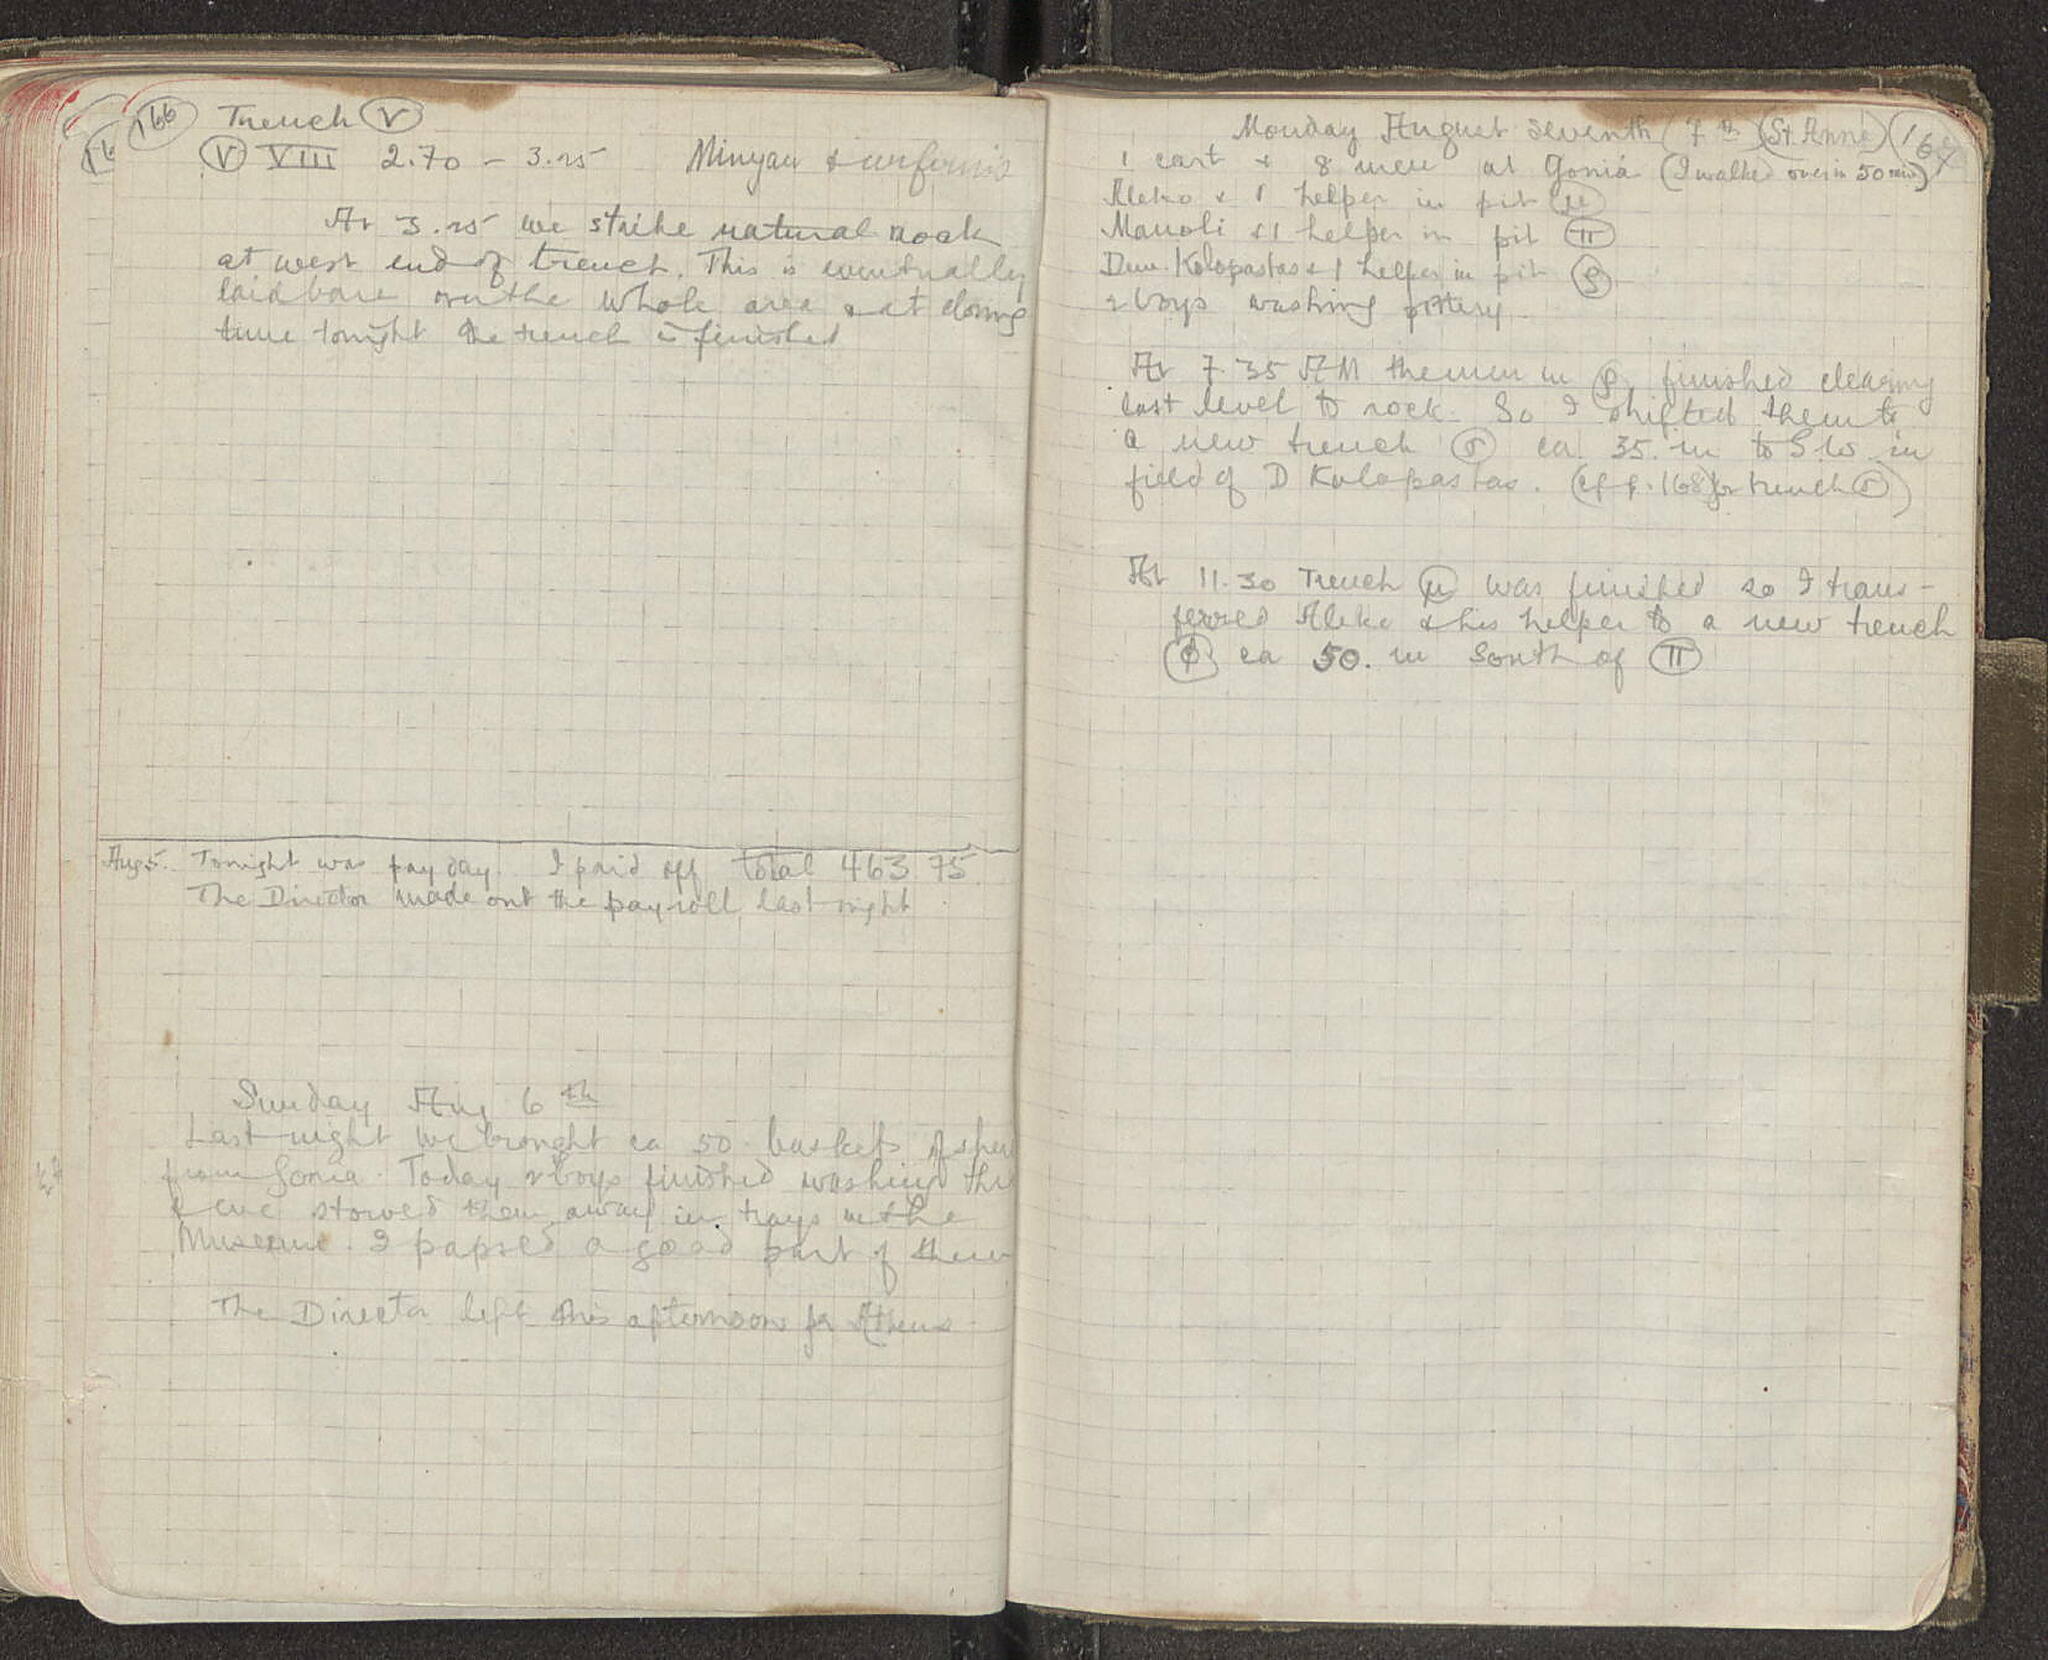 166 Trench V
V VIII 2.70 – 3.25 Minyan & urfirnis
At 3.25 we strike natural rock
at west end of trench. This is eventually
laid bare over the whole area & at closing
time tonight the trench is finished
Aug 5. Tonight was pay day. I paid off total 463.75
The Director made out the payroll last night
Sunday Aug 6th
Last night we brought ca 50 baskets of sher
from Gonia. Today 2 boys finished washing the
& we stowed them away in trays in the
Museum. I papsed a good part of them
The Director left this afternoon for Athens
Monday August Seventh (7th) (St. Anne) 167
1 cart & 8 men at Goniá (I walked over in 50 min)
Aleko & 1 helper in pit μ
Manoli & 1 helper in pit π
Dem. Kolopastas & 1 helper in pit ρ
2 boys washing pottery
At 7.35 AM the men in ρ finished clearing
last level to rock. So I shifted them to
a new trench σ ca. 35. m to S.W. in
field of D Kolopastas. (cf p. 168 for trench σ)
At 11.30 Trench μ was finished so I trans-
ferred Aleko & his helper to a new trench
φ ca 50. m South of π